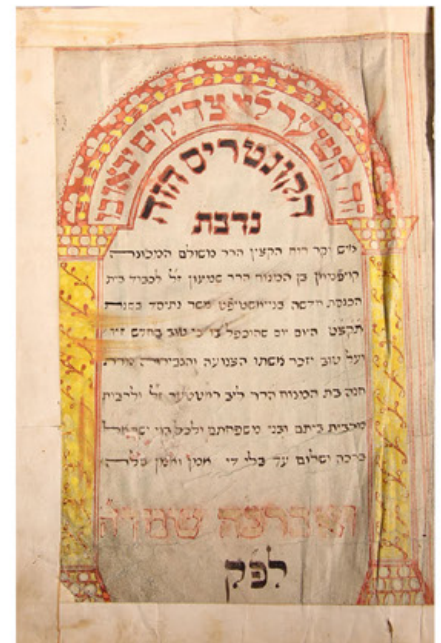 זה השער לײ צדיקים יבאו בו
הקונטריס הזה
נדבת
איש יקר רוח הקצין הרר משולם המכונה
קופמן בן המנוח הרר שמעון זל לכבוד בית
הכנסת חדשה אשר נתיסד בשנת
תקצט היום יום שהוכפל בו כי טוב בחדש זיו
ועל טוב יזכר אשתו הצנועה והגבירה מרת
חנה בת המנוח הרר ליב זל ולרבית
מרבית ביתם ובני משפחתם ולכל ישראל
ברכה ושלום עד בלי די אמן ואמן סלה
לפק